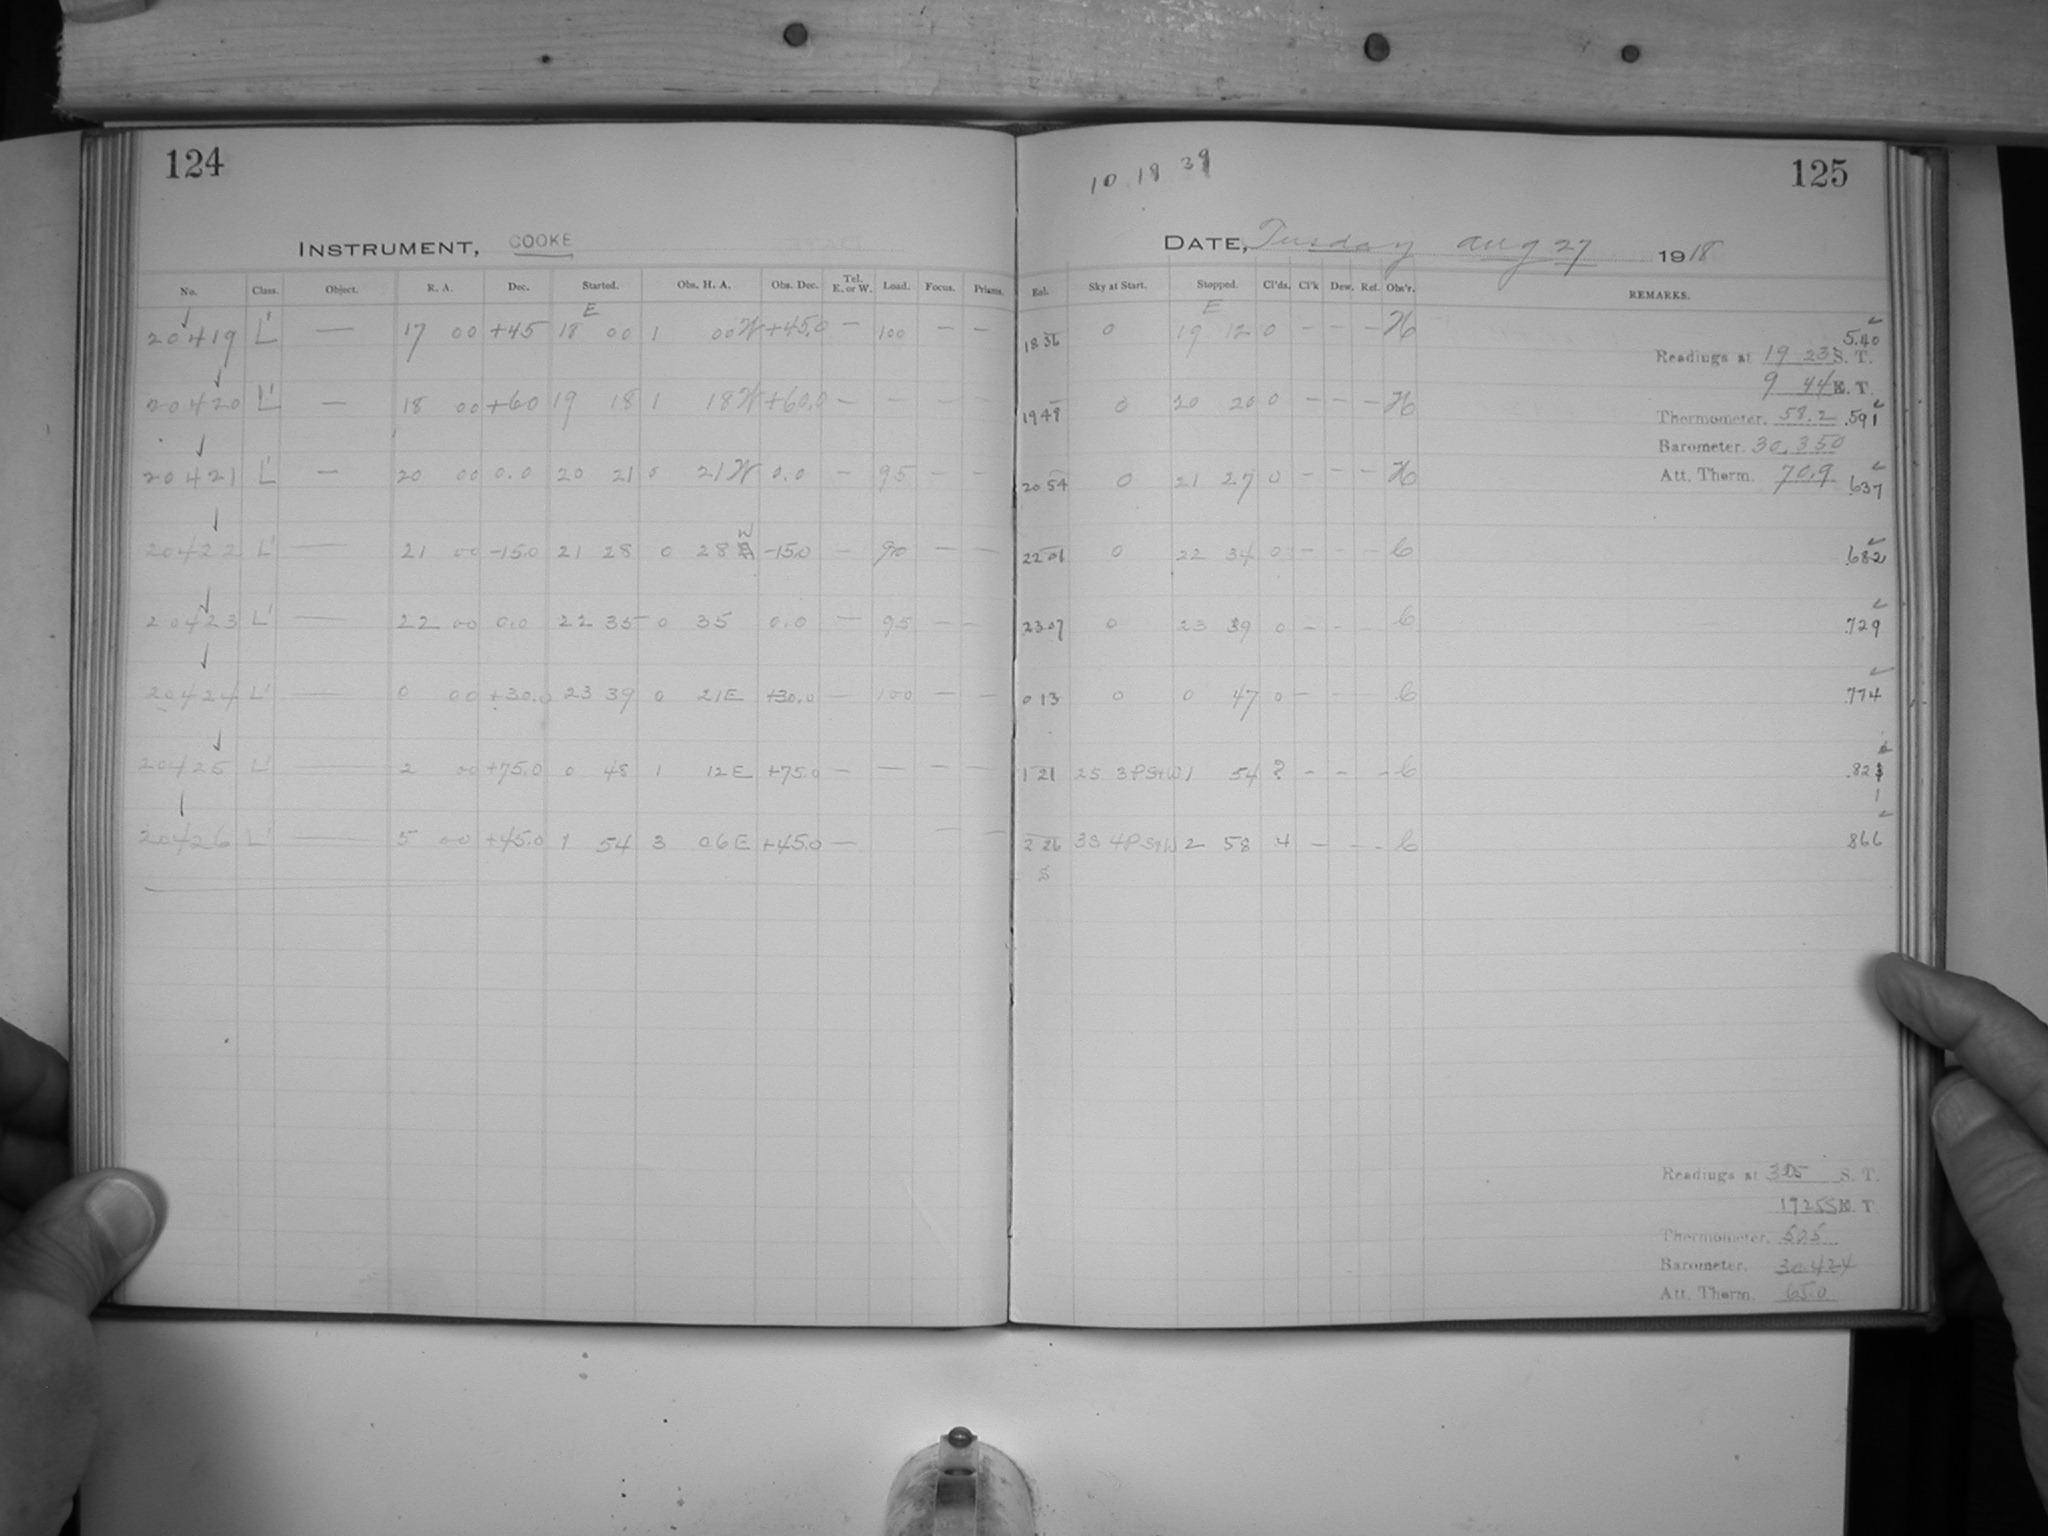 124
INSTRUMENT, COOKE
No. Class. Object. R. A. Dec. Started. Obs. H. A. Obs. Dec. Tel. E. or W. Load. Focus. Prisms.
E
20419 L' — 17 00 +45 18 00 1 00 W +45.0 — 100 — —
20420 L' — 18 00 +60 19 18 1 18 W +60.0 — — — —
20421 L' — 20 00 0.0 20 21 0 21 W 0.0 — 95 — —
20422 L' — 21 00 -15.0 21 28 0 28 W -15.0 — 90 — —
20423 L' — 22 00 0.0 22 35 0 35 0.0 — 95 — —
20424 L' — 0 00 +30.0 23 39 0 21 E +30.0 — 100 — —
20425 L' — 2 00 +75.0 0 48 1 12 E +75.0 — — — —
20426 L' — 5 00 +45.0 1 54 3 06 E +45.0 — — —
10 19 39
125
DATE, Tuesday Aug 27 1918
Eol. Sky at Start. Stopped. Cl'ds. Cl'k Dew. Ref. Obs'r. REMARKS.
E
18 36 0 19 12 0 — — — H 5.40
Readings at 19 23 S. T.
9 44 E. T.
19 49 0 20 20 0 — — — H
Thermometer. 58.2 .591
Barometer. 30.350
20 54 0 21 27 0 — — — H
Att. Therm. 70.9 .637
22 01 0 22 34 0 — — — C .682
23 07 0 23 39 0 — — C .729
0 13 0 0 47 0 — C .774
1 21 25 3 P S+W 1 54 ? — — — C
1
2 26 33 4 P S+W 2 58 4 — — — C 866
S
Readings at S. T.
E. T
Thermometer.
Barometer. 30.424
Att. Therm. 65.0